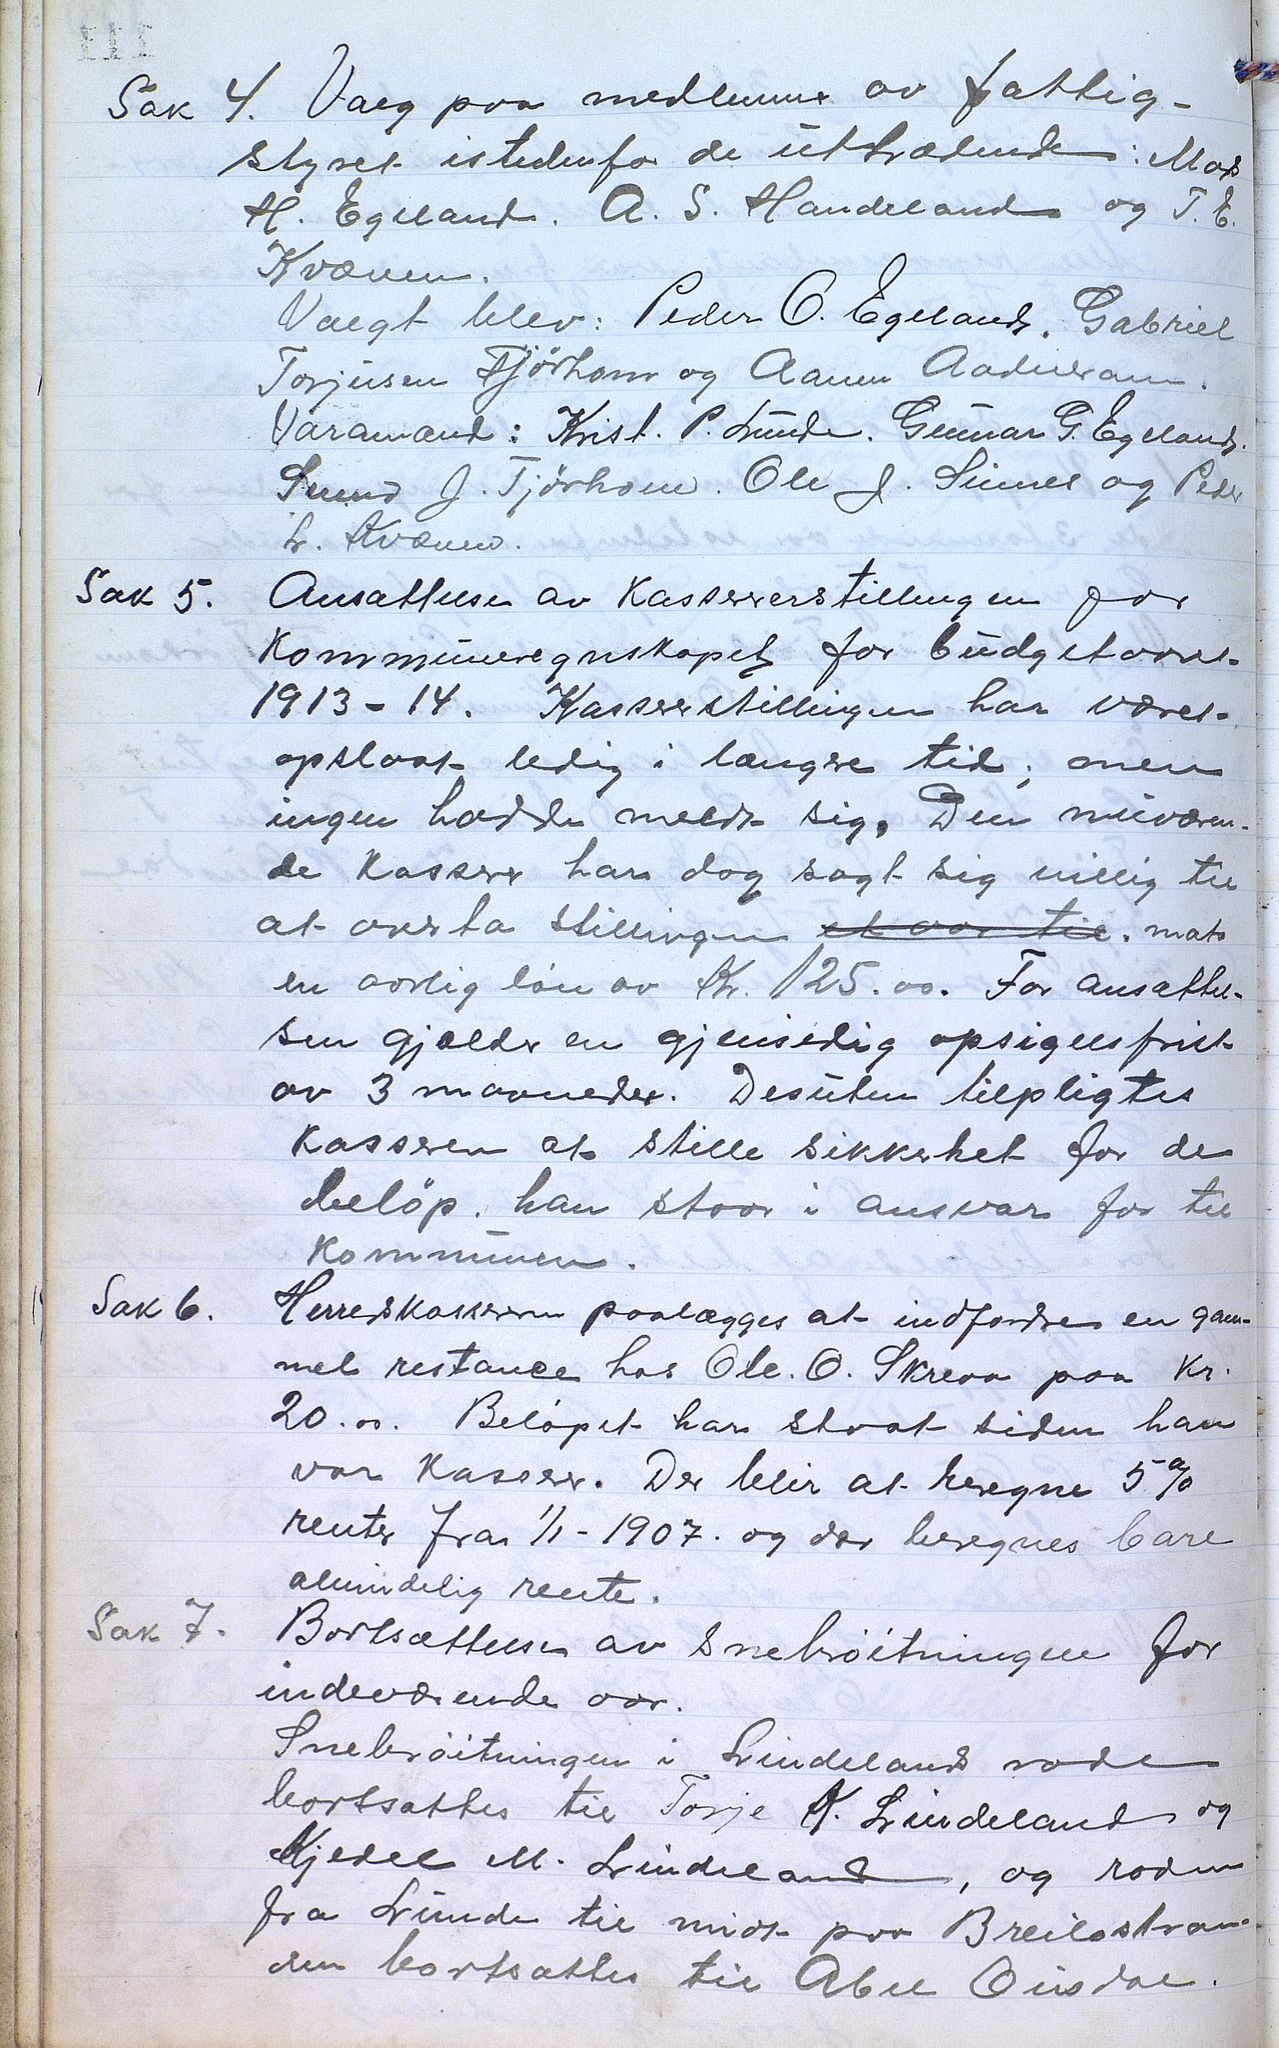 Sak 4. Valg paa medlemmer av fattig-
styret istedenfor de uttrædende: Mads
H. Egeland. A. S. Handeland og T. E.
Kvænen.
Valgt blev: Peder O. Egeland, Gabriel
Torjusen Tjørhom og Aanen Aadneram.
Varamænd: Krist. P. Lunde. Gunnar G. Egeland.
Svend J. Tjørhom. Ole J. Sinnes og Peder
L. Kvænen.
Sak 5. Ansættelse av Kassererstillingen for
Kommuneregnskapet for budgetaaret
1913-14. Kassererstillingen har været
opslaat ledig i længere tid, men
ingen hadde meldt sig. Den nuværen-
de Kasserer har dog sagt sig villig til
at overta stillingen et aar til. mot
en aarlig løn av Kr. 125.00. For ansættel-
sen gjælder en gjensidig opsigelsfrist
av 3 maaneder. Desuten tilpligtes
Kasseren at stille sikkerhet for de
beløp. han staar i ansvar for til
Kommunen.
Sak 6. Herredskasseren paalægges at indfordre en gam-
mel restance hos Ole. O. Skrea paa Kr.
20.00. Beløpet har staat siden han
var Kasserer. Der blir at beregne 5 %
renter fra 1/1-1907. og der beregnes bare
almindelig rente.
Sak 7. Bortsættelse av snebrøitningen for
indeværende aar.
Snebrøitningen i Lindelands rode
bortsattes til Torje K. Lindeland og
Kjedel M. Lindeland, og roden
fra Lunde til midt paa Breilistran-
den bortsattes til Abel Ousdal.